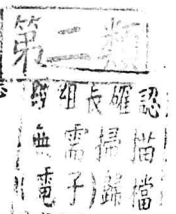 第二類
經組長確認
無需掃描
電子歸檔